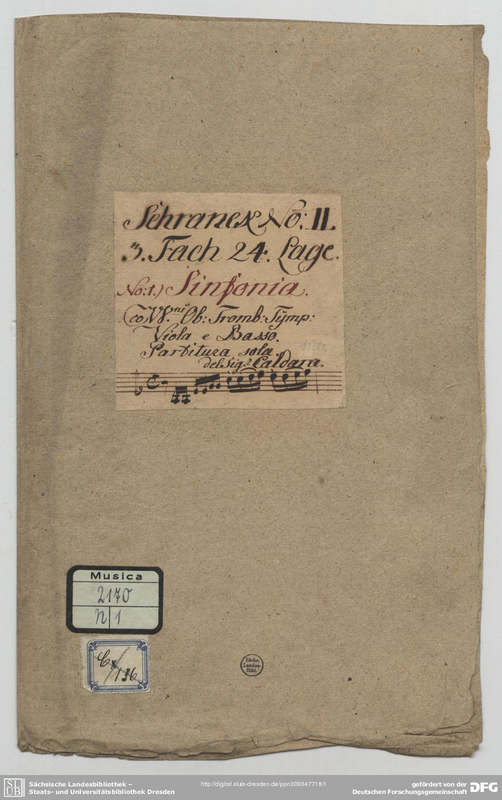 Schranck No: II.
3. Fach 24. Lage.
No: 1.) Sinfonia.
co VV.ni Ob: Tromb: Tymp:
Viola e Basso.
Partitura sola.
del Sig.r Caldara.
Musica
2170
N 1
Cx
136
Sächs.
Landes-
Bibl.
Sächsische Landesbibliothek –
Staats- und Universitätsbibliothek Dresden
http://digital.slub-dresden.de/ppn309347718/1
gefördert von der
Deutschen Forschungsgemeinschaft
DFG